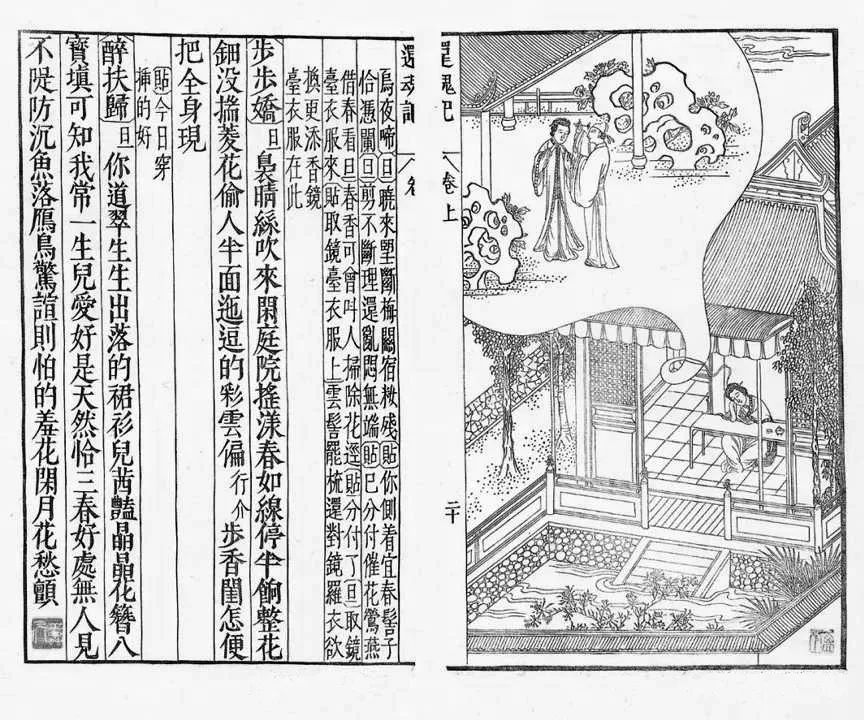 還魂記
卷上
二十
還魂記
烏夜啼旦曉來望斷梅關宿粧殘貼你側着宜春髻子
恰憑闌旦剪不斷理還亂悶無端貼已分付催花鶯燕
借春看旦春香可曾叫人掃除花逕貼分付了旦取鏡
臺衣服來貼取鏡臺衣服上雲髻罷梳還對鏡羅衣欲
換更添香鏡
臺衣服在此
步步嬌旦裊晴絲吹來閑庭院搖漾春如線停半餉整花
鈿没揣菱花偷人半面迤逗的彩雲偏行介步香閨怎便
把全身現
貼今日穿
揷的好
醉扶歸旦你道翠生生出落的裙衫兒茜豔晶晶花簪八
寶填可知我常一生兒愛好是天然恰三春好處無人見
不隄防沉魚落鴈鳥驚諠則怕的羞花閉月花愁顫